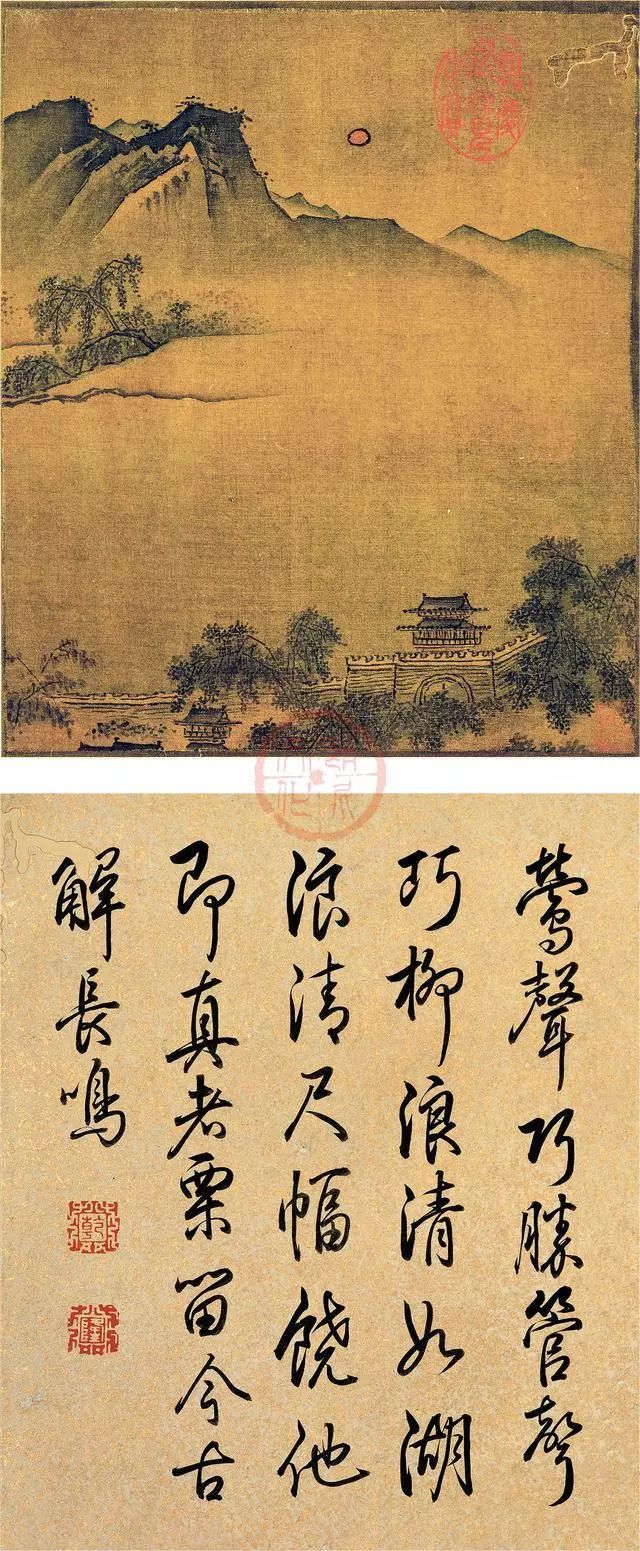 鶯聲巧勝管聲
巧柳浪清如湖
浪清尺幅饒他
即真者栗留今古
解長鳴
乾
隆